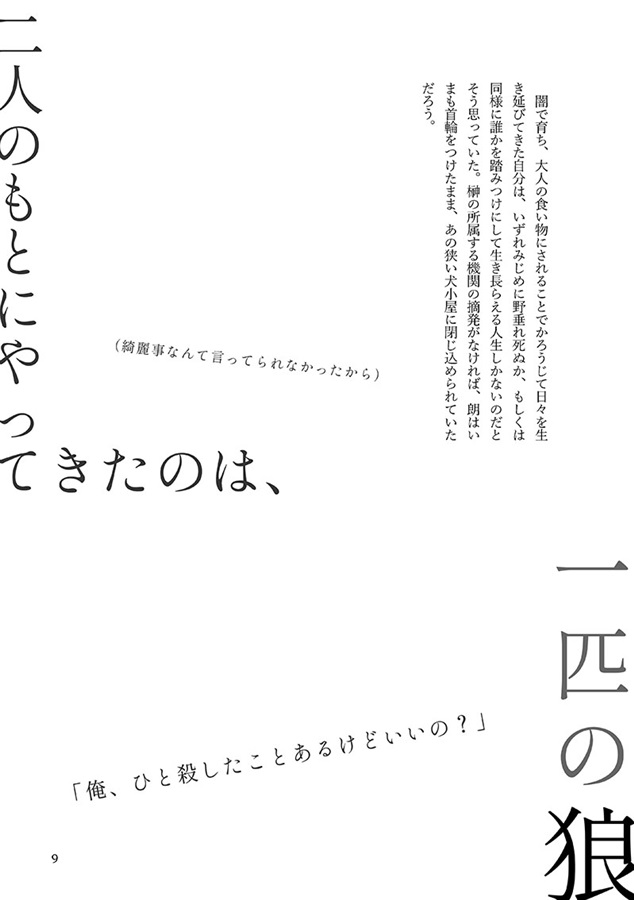 闇で育ち、大人の食い物にされることでかろうじて日々を生
き延びてきた自分は、いずれみじめに野垂れ死ぬか、もしくは
同様に誰かを踏みつけにして生き長らえる人生しかないのだと
そう思っていた。榊の所属する機関の摘発がなければ、朗はい
まも首輪をつけたまま、あの狭い犬小屋に閉じ込められていた
だろう。
（綺麗事なんて言ってられなかったから）
二人のもとにやってきたのは、
一匹の狼
「俺、ひと殺したことあるけどいいの？」
9